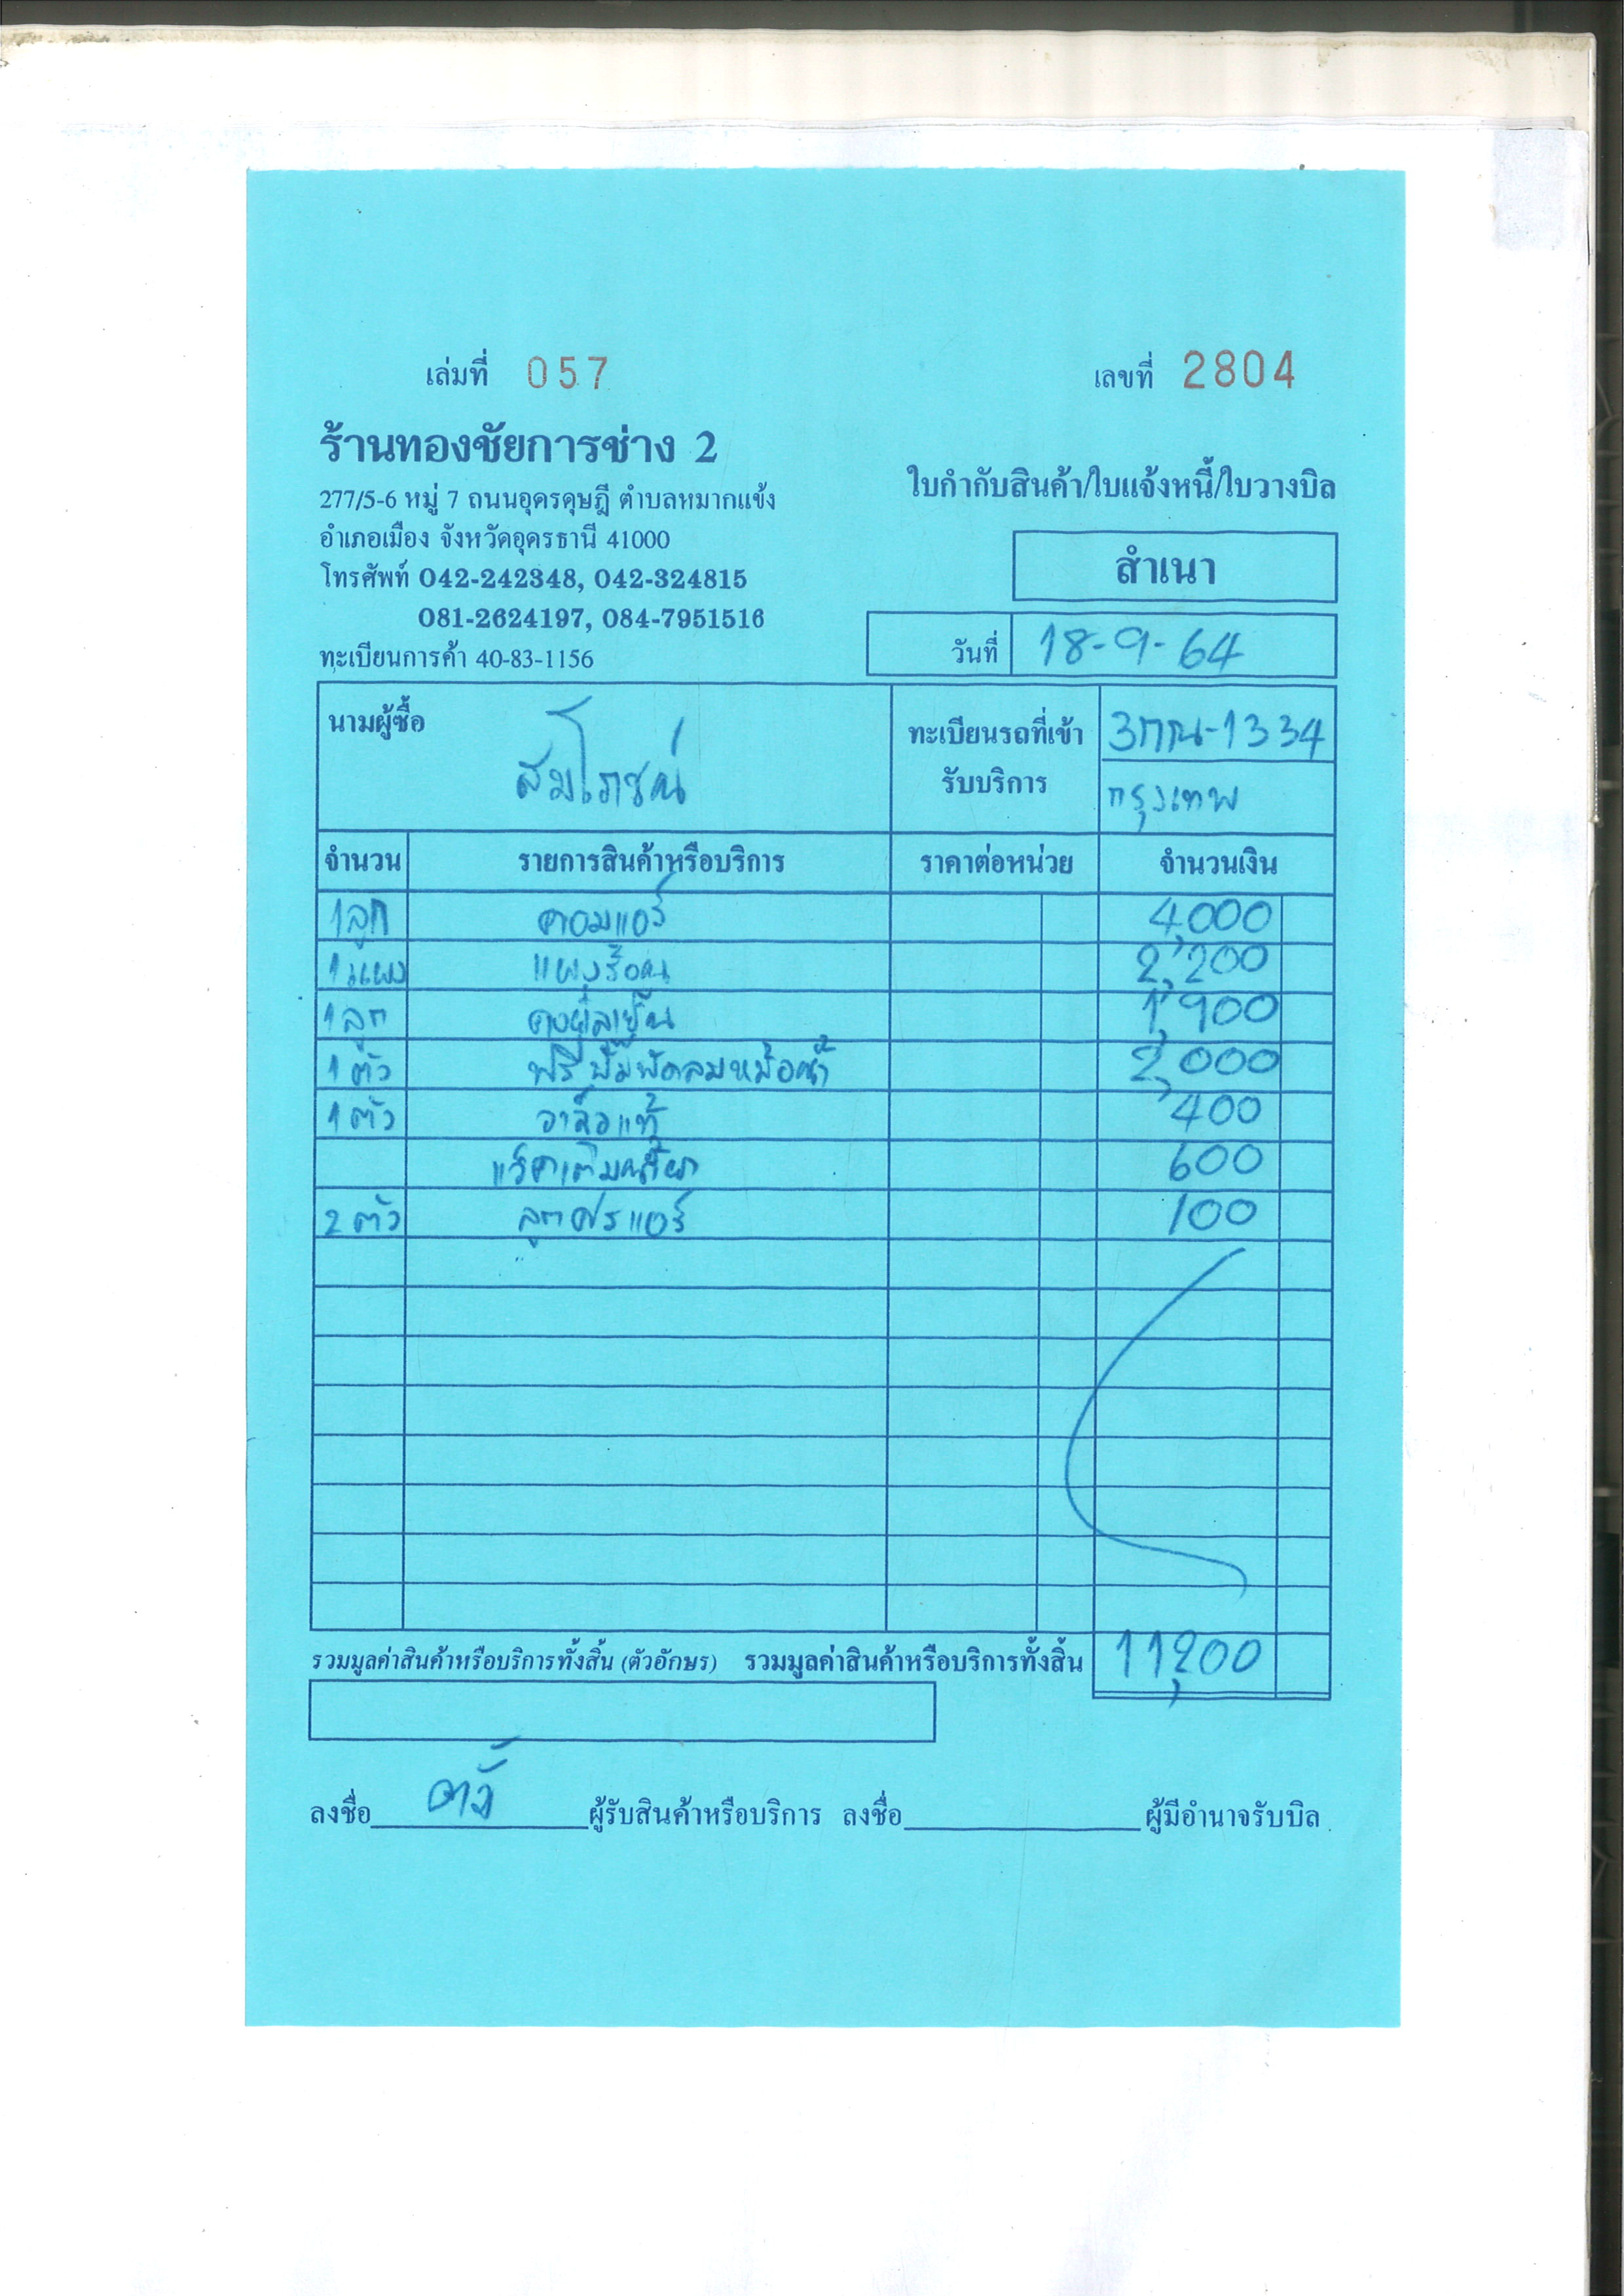 เล่มที่ 057 เลขที่ 2804
ร้านทองชัยการช่าง 2
ใบกำกับสินค้า/ใบแจ้งหนี้/ใบวางบิล
277/5-6 หมู่ 7 ถนนอุดรดุษฎี ตำบลหมากแข้ง
อำเภอเมือง จังหวัดอุดรธานี 41000
สำเนา
โทรศัพท์ 042-242348, 042-324815
081-2624197, 084-7951516
วันที่ 18-9-64
ทะเบียนการค้า 40-83-1156
นามผู้ซื้อ สมโภชน์
ทะเบียนรถที่เข้ารับบริการ 3กกน-1334
กรุงเทพ
จำนวน รายการสินค้าหรือบริการ ราคาต่อหน่วย จำนวนเงิน
1 ลูก คอมแอร์ 4,000
1 แผง แผงร้อน 2,200
1 ลูก 1,900
1 ตัว ฟรีปั๊มพัดลมหม้อน้ำ 2,000
1 ตัว วาล์วแท้ 400
แว็คเติมน้ำยา 600
2 ตัว ลูกศรแอร์ 100
รวมมูลค่าสินค้าหรือบริการทั้งสิ้น (ตัวอักษร) รวมมูลค่าสินค้าหรือบริการทั้งสิ้น 11,200
ลงชื่อ ผู้รับสินค้าหรือบริการ ลงชื่อ ผู้มีอำนาจรับบิล